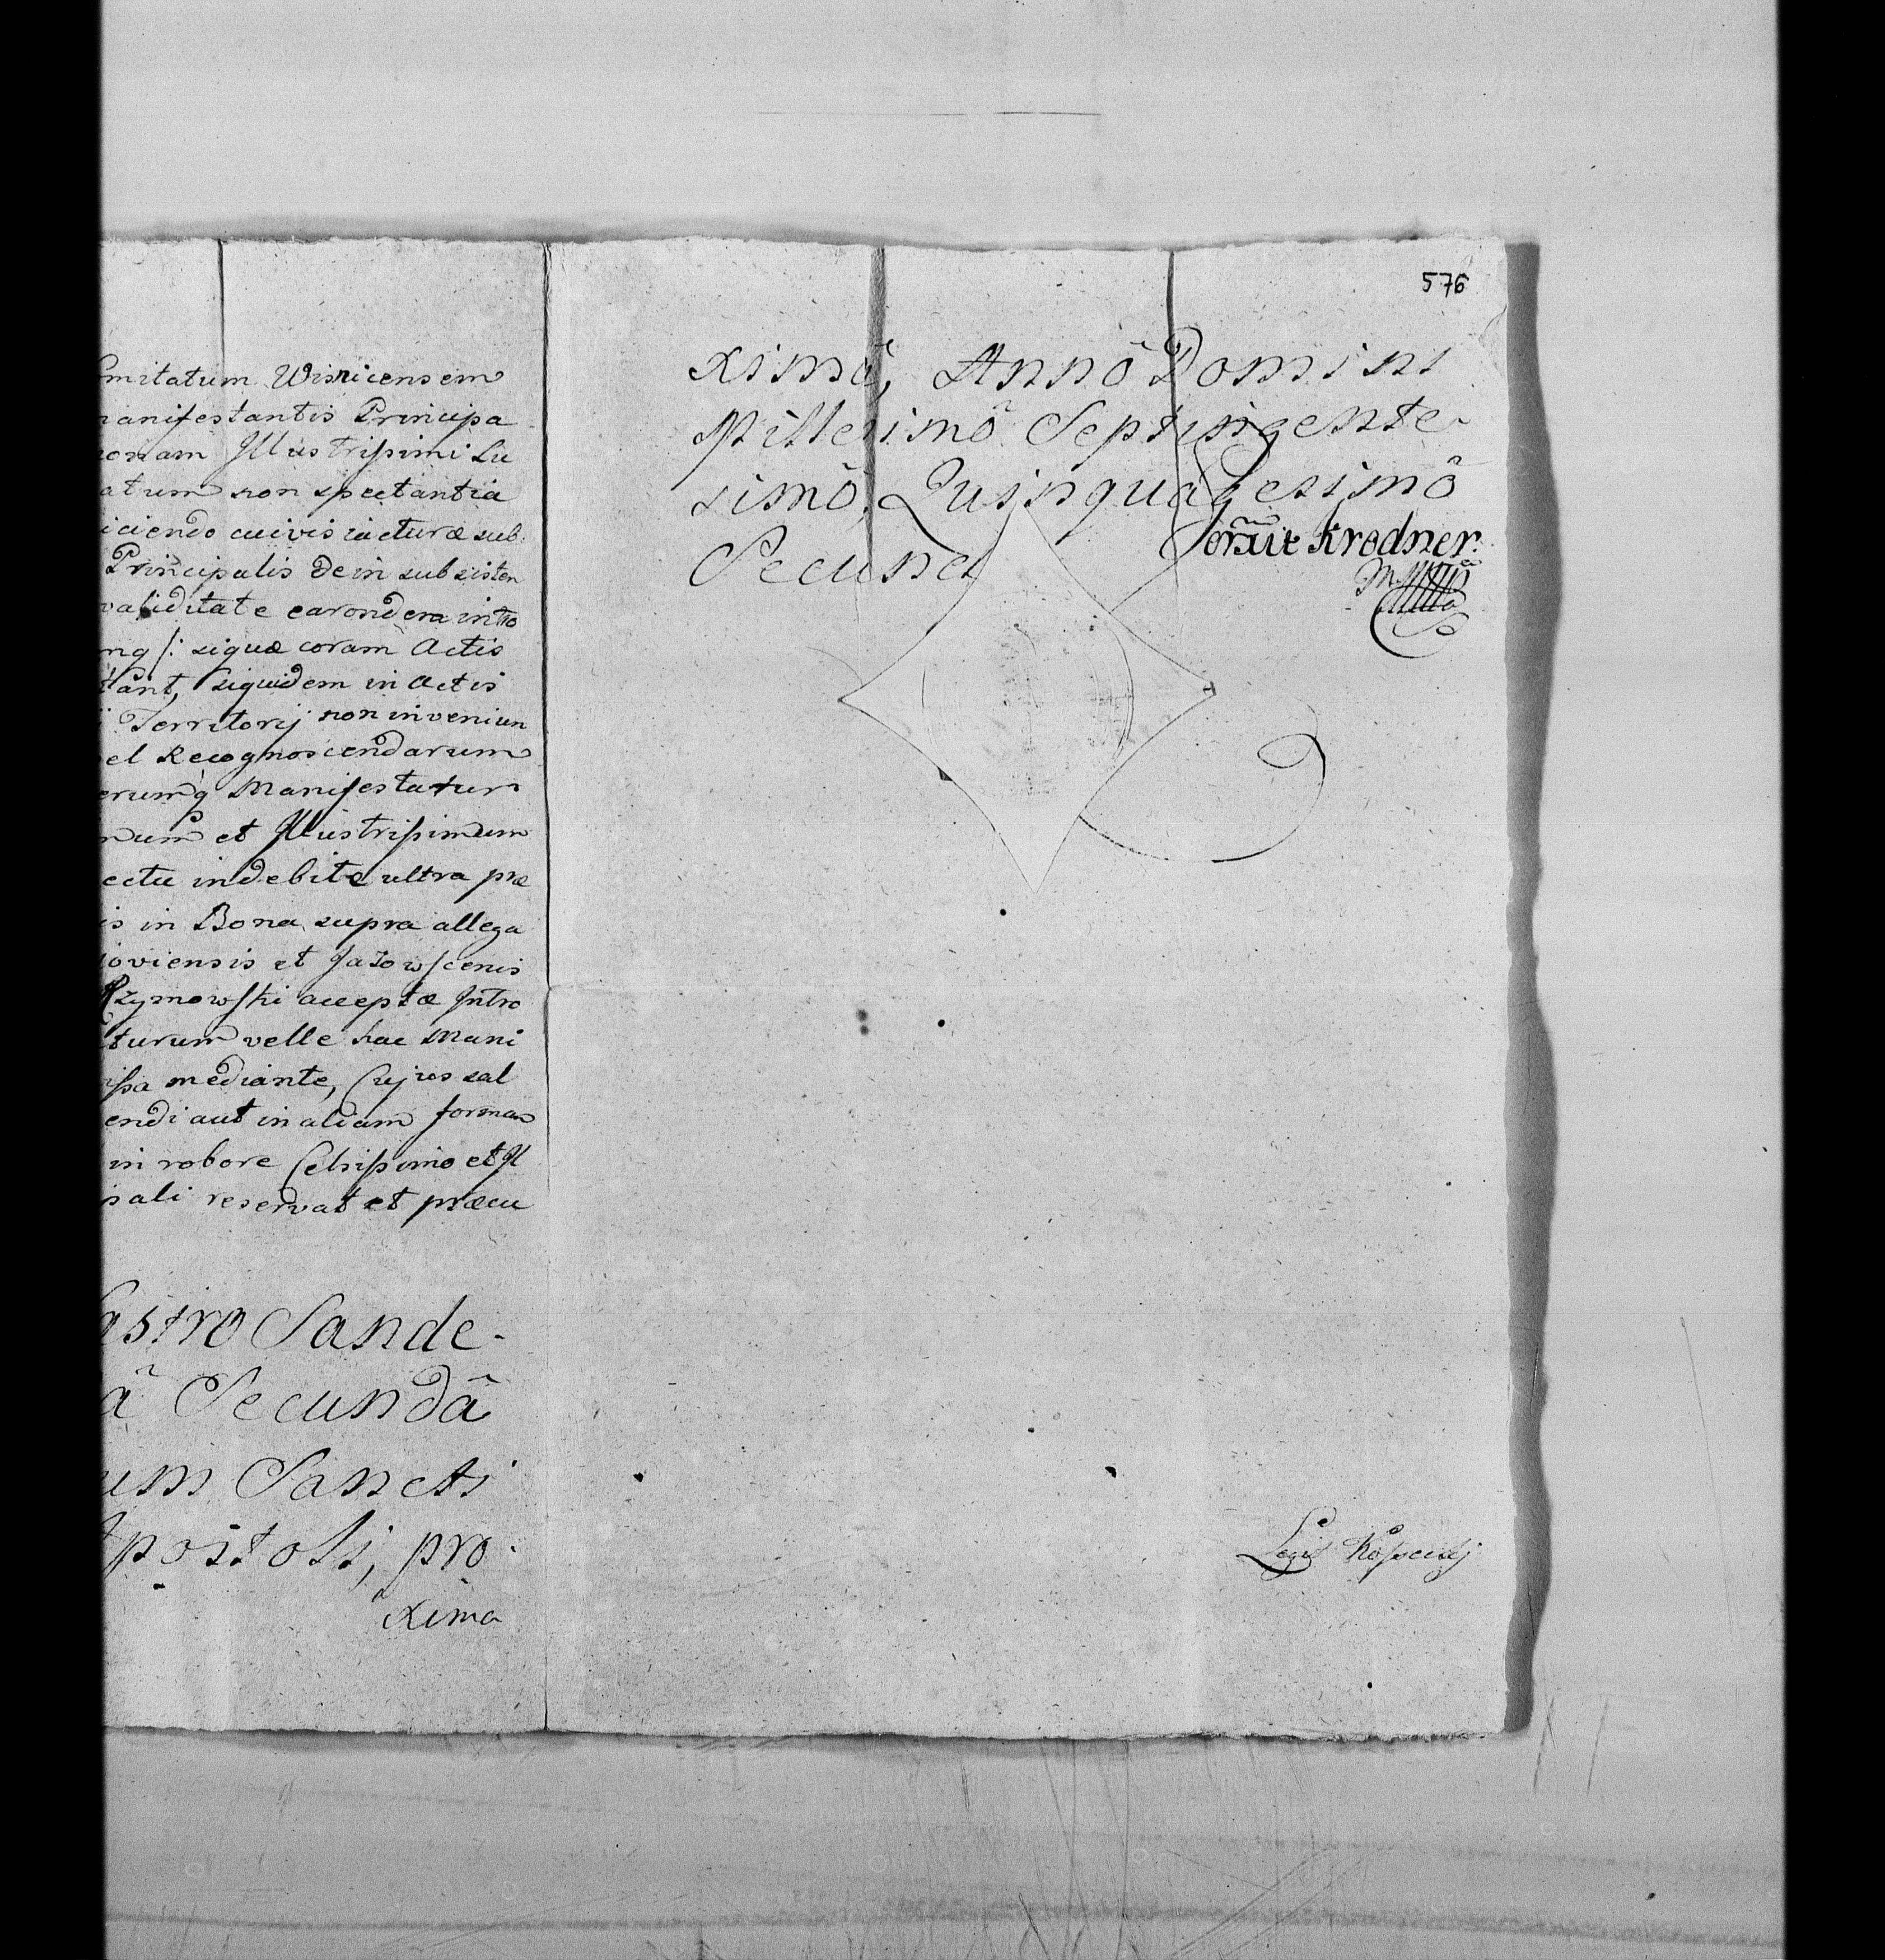 mitatum Wisnicensem
manifestantis Principa
onam Illustrissimi Lu
atum non spectantia
iciendo cuivis iacturæ sub
Principalis dein subsisten
validitate earondem intro
nq /: siquæ coram Actis
tant, siquidem in Actis
Territorij non inveniun
el Recognoscendarum
erumq Manifestatur
num et Illustrissimum
ectu indebitæ ultra præ
is in Bona supra allega
ioviensis et Jazowscensis
Rzymowski acceptæ Intro
turum velle hac Mani
issa mediante, Cujus sal
endi aut in aliam formam
in robore Celsissimo et Il
ali reservat et præcu
astro Sande-
â Secundâ
um Sancti
Apostoli, pro-
xima
576
ximâ, Annô Domini
Millesimô Septingente-
simô Quinquagesimô
Secund
Krodner.
Legit